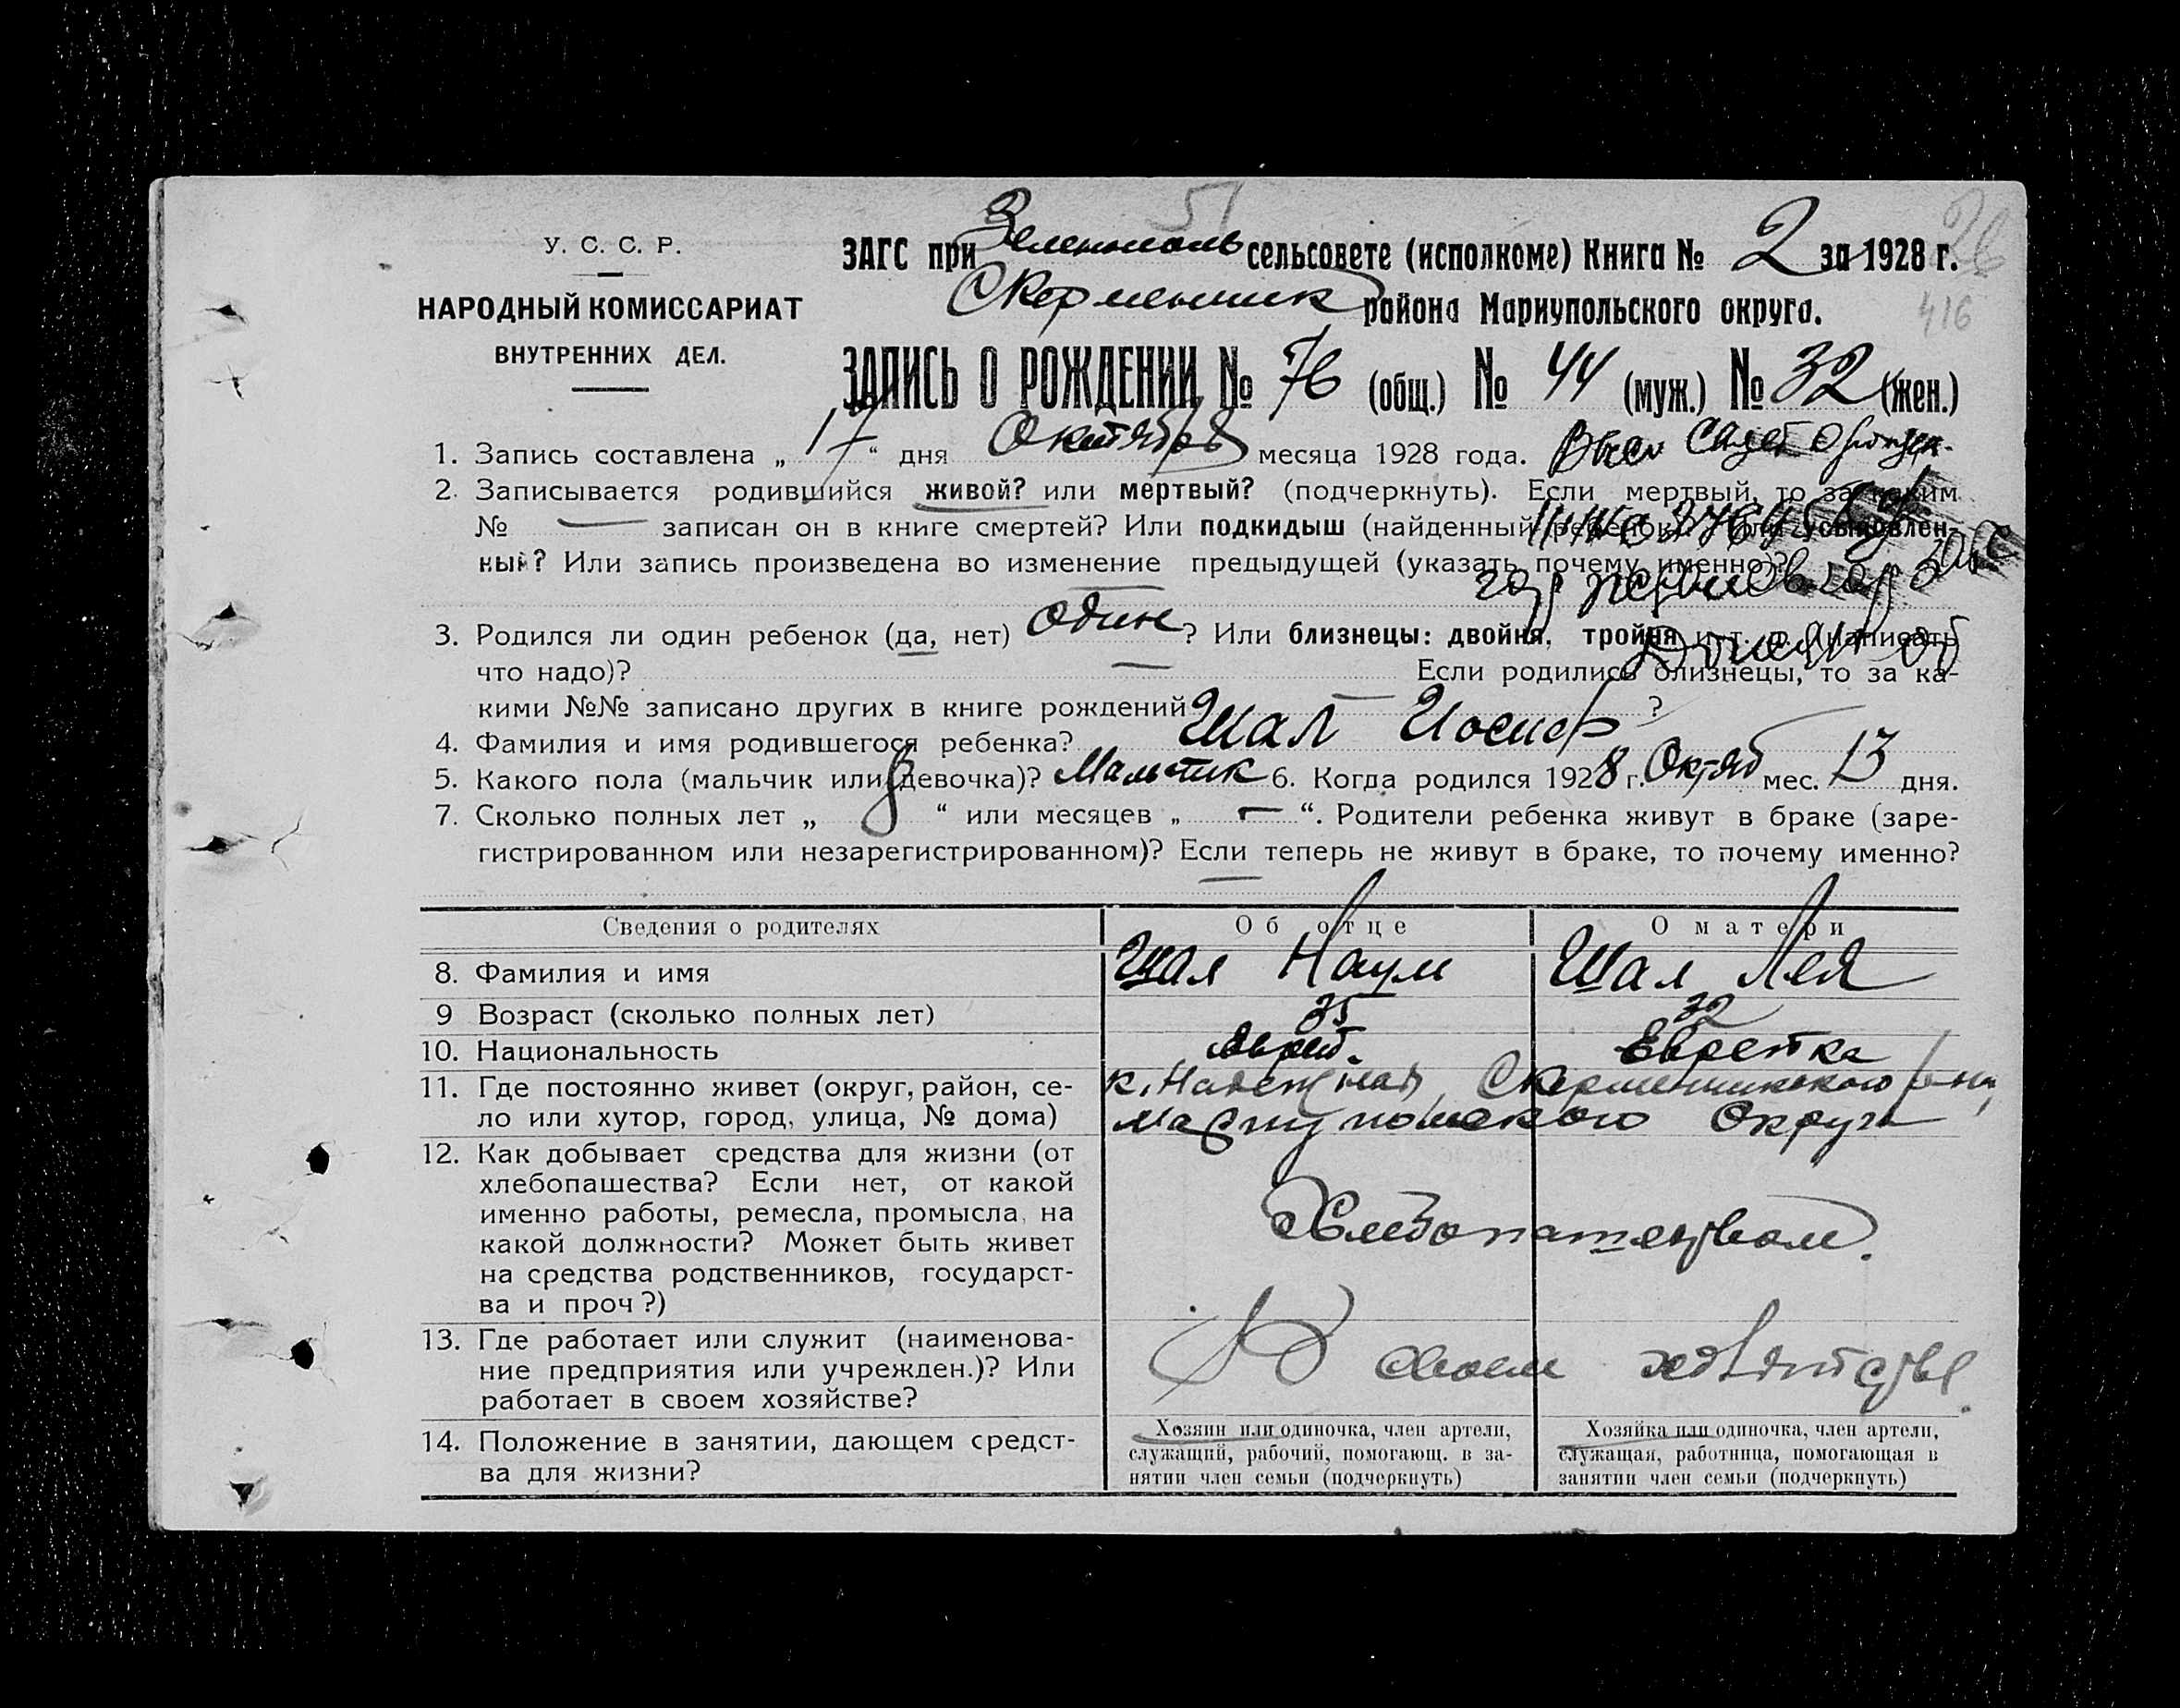 51
У. С. С. Р.
НАРОДНЫЙ КОМИССАРИАТ
ВНУТРЕННИХ ДЕЛ.
ЗАГС при Зеленополь сельсовете (исполкоме) Книга № 2 за 1928 г.
района Мариупольского округа.
416
ЗАПИСЬ О РОЖДЕНИИ № 76 (общ.) № 44 (муж.) № 32 (жен.)
1. Запись составлена „ 17 “ дня Октября месяца 1928 года.
2. Записывается родившийся живой? или мертвый? (подчеркнуть). Если мертвый, то за каким
№ — записан он в книге смертей? Или подкидыш (найденный ребенок? Или усыновлен-
ный? Или запись произведена во изменение предыдущей (указать почему именно)?
3. Родился ли один ребенок (да, нет) один ? Или близнецы: двойня, тройня и т. п. (написать
что надо)? — Если родились близнецы, то за ка-
кими №№ записано других в книге рождений — ?
4. Фамилия и имя родившегося ребенка? Шал Иосиф
5. Какого пола (мальчик или девочка)? Мальчик 6. Когда родился 1928 г. Октяб мес. 13 дня.
7. Сколько полных лет „ 8 “ или месяцев „ — “. Родители ребенка живут в браке (заре-
гистрированном или незарегистрированном)? Если теперь не живут в браке, то почему именно?
—
Сведения о родителях Об отце О матери
8. Фамилия и имя Шал Наум Шал Лея
9 Возраст (сколько полных лет) 35 32
10. Национальность Еврей. Еврейка
11. Где постоянно живет (округ, район, се-
ло или хутор, город, улица, № дома)
Мариупольского Округа
12. Как добывает средства для жизни (от
хлебопашества? Если нет, от какой
именно работы, ремесла, промысла, на
какой должности? Может быть живет
на средства родственников, государст-
ва и проч?)
Хлебопашеством.
13. Где работает или служит (наименова-
ние предприятия или учрежден.)? Или
работает в своем хозяйстве?
В своем хозяйстве.
14. Положение в занятии, дающем средст-
ва для жизни?
Хозяин или одиночка, член артели,
служащий, рабочий, помогающ. в за-
нятии член семьи (подчеркнуть)
Хозяйка или одиночка, член артели,
служащая, работница, помогающая в
занятии член семьи (подчеркнуть)